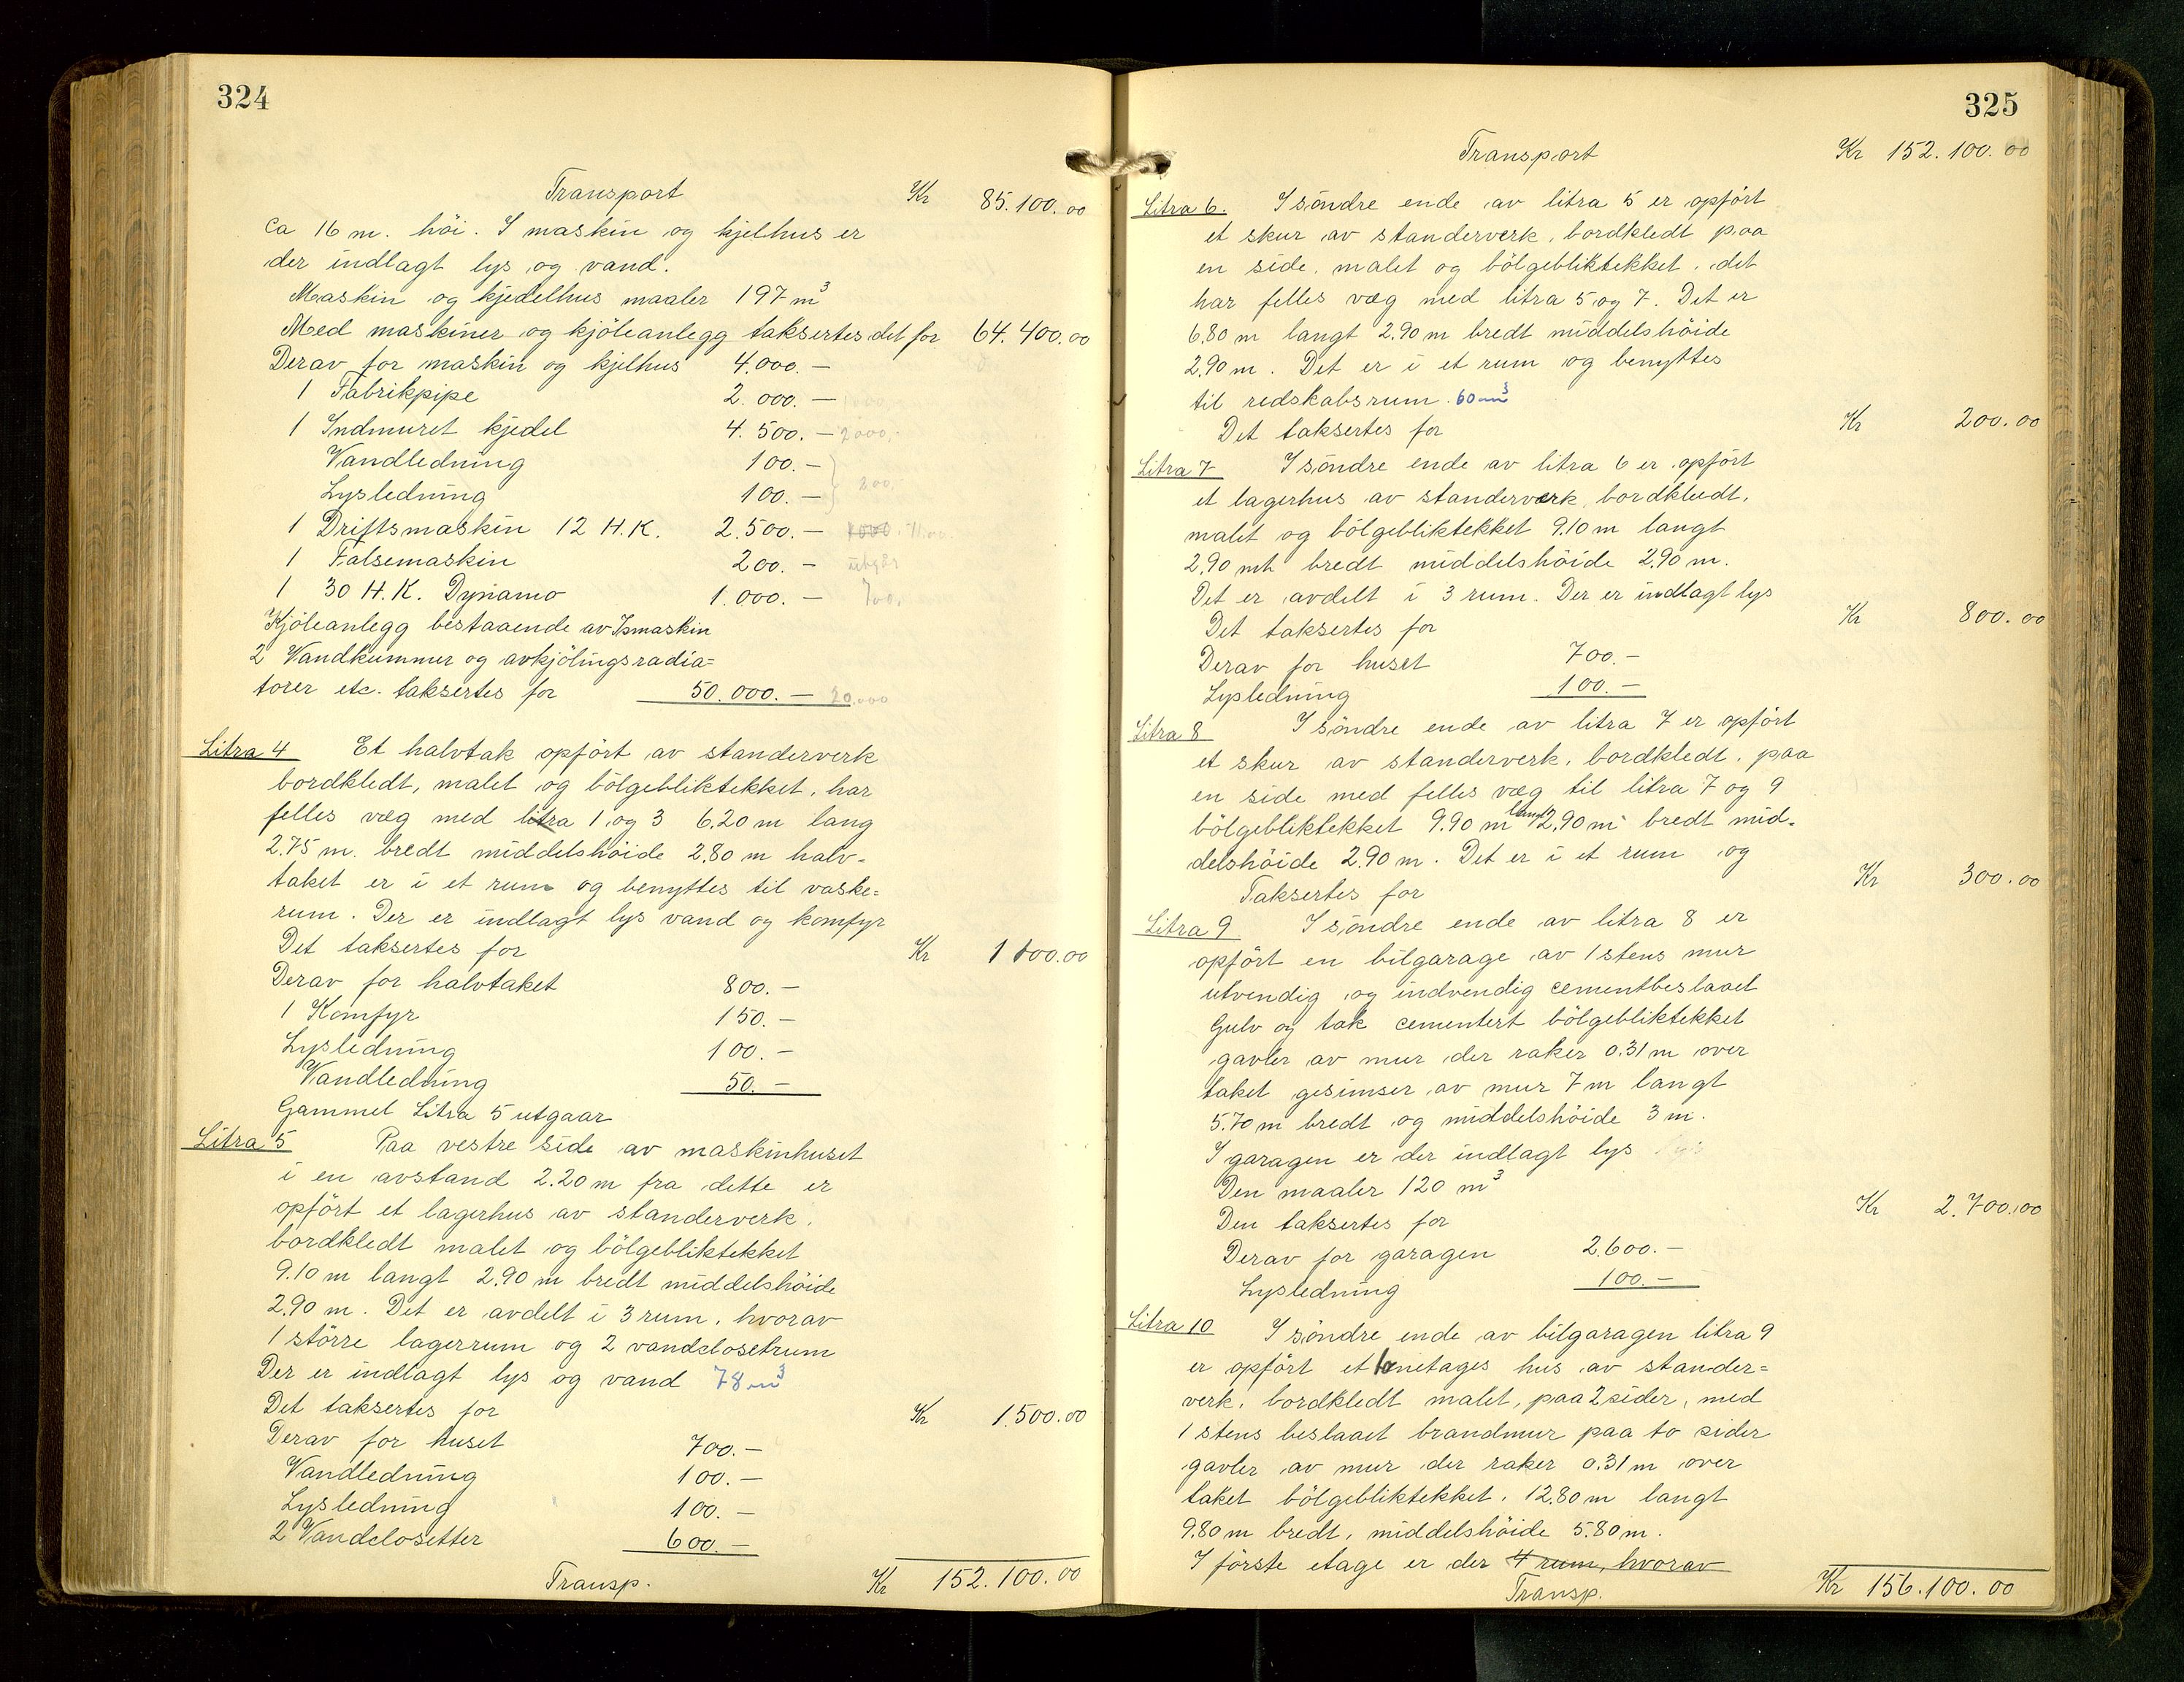 324
Transport Kr 85.100.00
Ca 16 m. höi. I maskin og kjelhus er
der indlagt lys og vand.
Maskin og kjedelhus maaler 197 m³
Med maskiner og kjöleanlegg taksertes det for 64.400.00
Derav for maskin og kjelhus 4.000.—
1 Fabrikpipe 2.000.—
1 Indmuret kjedel 4.500.— 2000,-
Vandledning 100.—
Lysledning 100.— 200,-
1 Driftsmaskin 12 H.K. 2.500.—
1 Falsemaskin 200.— utgår
1 30 H.K. Dynamo 1.000.— 700,
Kjöleanlegg bestaaende av Ismaskin
2 Vandkummer og avkjölingsradia=
torer etc. taksertes for 50.000.— 20.000
Litra 4 Et halvtak opfört av standerverk
bordkledt, malet og bölgebliktekket, har
felles væg med litra 1 og 3 6,20 m lang
2.75 m. bredt middelshöide 2.80 m halv=
taket er i et rum og benyttes til vaske=
rum. Der er indlagt lys vand og komfyr
Det taksertes for Kr 1100.00
Derav for halvtaket 800.—
1 Komfyr 150.—
Lysledning 100.—
Vandledning 50.—
Gammel Litra 5 utgaar
Litra 5 Paa vestre side av maskinhuset
i en avstand 2.20 m fra dette er
opfört et lagerhus av standerverk,
bordkledt malet og bölgebliktekket
9.10 m langt 2.90 m bredt middelshöide
2.90 m. Det er avdelt i 3 rum, hvorav
1 större lagerrum og 2 vandclosetrum
Der er indlagt lys og vand 78 m³
Det taksertes for Kr 1.500.00
Derav for huset 700.—
Vandledning 100.—
Lysledning 100.—
2 Vandclosetter 600.—
Transp. Kr 152.100.00
325
Transport Kr 152.100.00
Litra 6. I söndre ende av litra 5 er opfört
et skur av standerverk, bordkledt paa
en side, malet og bölgebliktekket, det
har felles væg med litra 5 og 7. Det er
6.80 m langt 2.90 m bredt middelshöide
2.90 m. Det er i et rum og benyttes
til redskabsrum. 60 m³
Det taksertes for Kr 200.00
Litra 7 I söndre ende av litra 6 er opfört
et lagerhus av standerverk, bordkledt,
malet og bölgebliktekket 9.10 m langt
2.90 mt bredt middelshöide 2.90 m.
Det er avdelt i 3 rum. Der er indlagt lys
Det taksertes for Kr 800.00
Derav for huset 700.—
Lysledning 100.—
Litra 8 I söndre ende av litra 7 er opfört
et skur av standerverk, bordkledt, paa
en side med felles væg til litra 7 og 9
bölgebliktekket 9.90 m langt 2.90 m bredt mid=
delshöide 2.90 m. Det er i et rum og
Taksertes for Kr 300.00
Litra 9 I söndre ende av litra 8 er
opfört en bilgarage av 1 stens mur
utvendig og indvendig cementbeslaaet
Gulv og tak cementert bölgebliktekket
gavler av mur der raker 0.31 m over
taket gesimser av mur 7 m langt
5.70 m bredt og middelshöide 3 m.
I garagen er der indlagt lys
Den maaler 120 m³
Den taksertes for Kr 2.700.00
Derav for garagen 2.600.—
Lysledning 100.—
Litra 10 I söndre ende av bilgaragen litra 9
er opfört et 1 enetages hus av stander=
verk, bordkledt malet, paa 2 sider, med
1 stens beslaaet brandmur paa to sider
gavler av mur der raker 0.31 m over
taket bölgebliktekket, 12.80 m langt
9.80 m bredt, middelshöide 5.80 m.
I förste etage er der 4 rum, hvorav
Transp. Kr 156.100.00